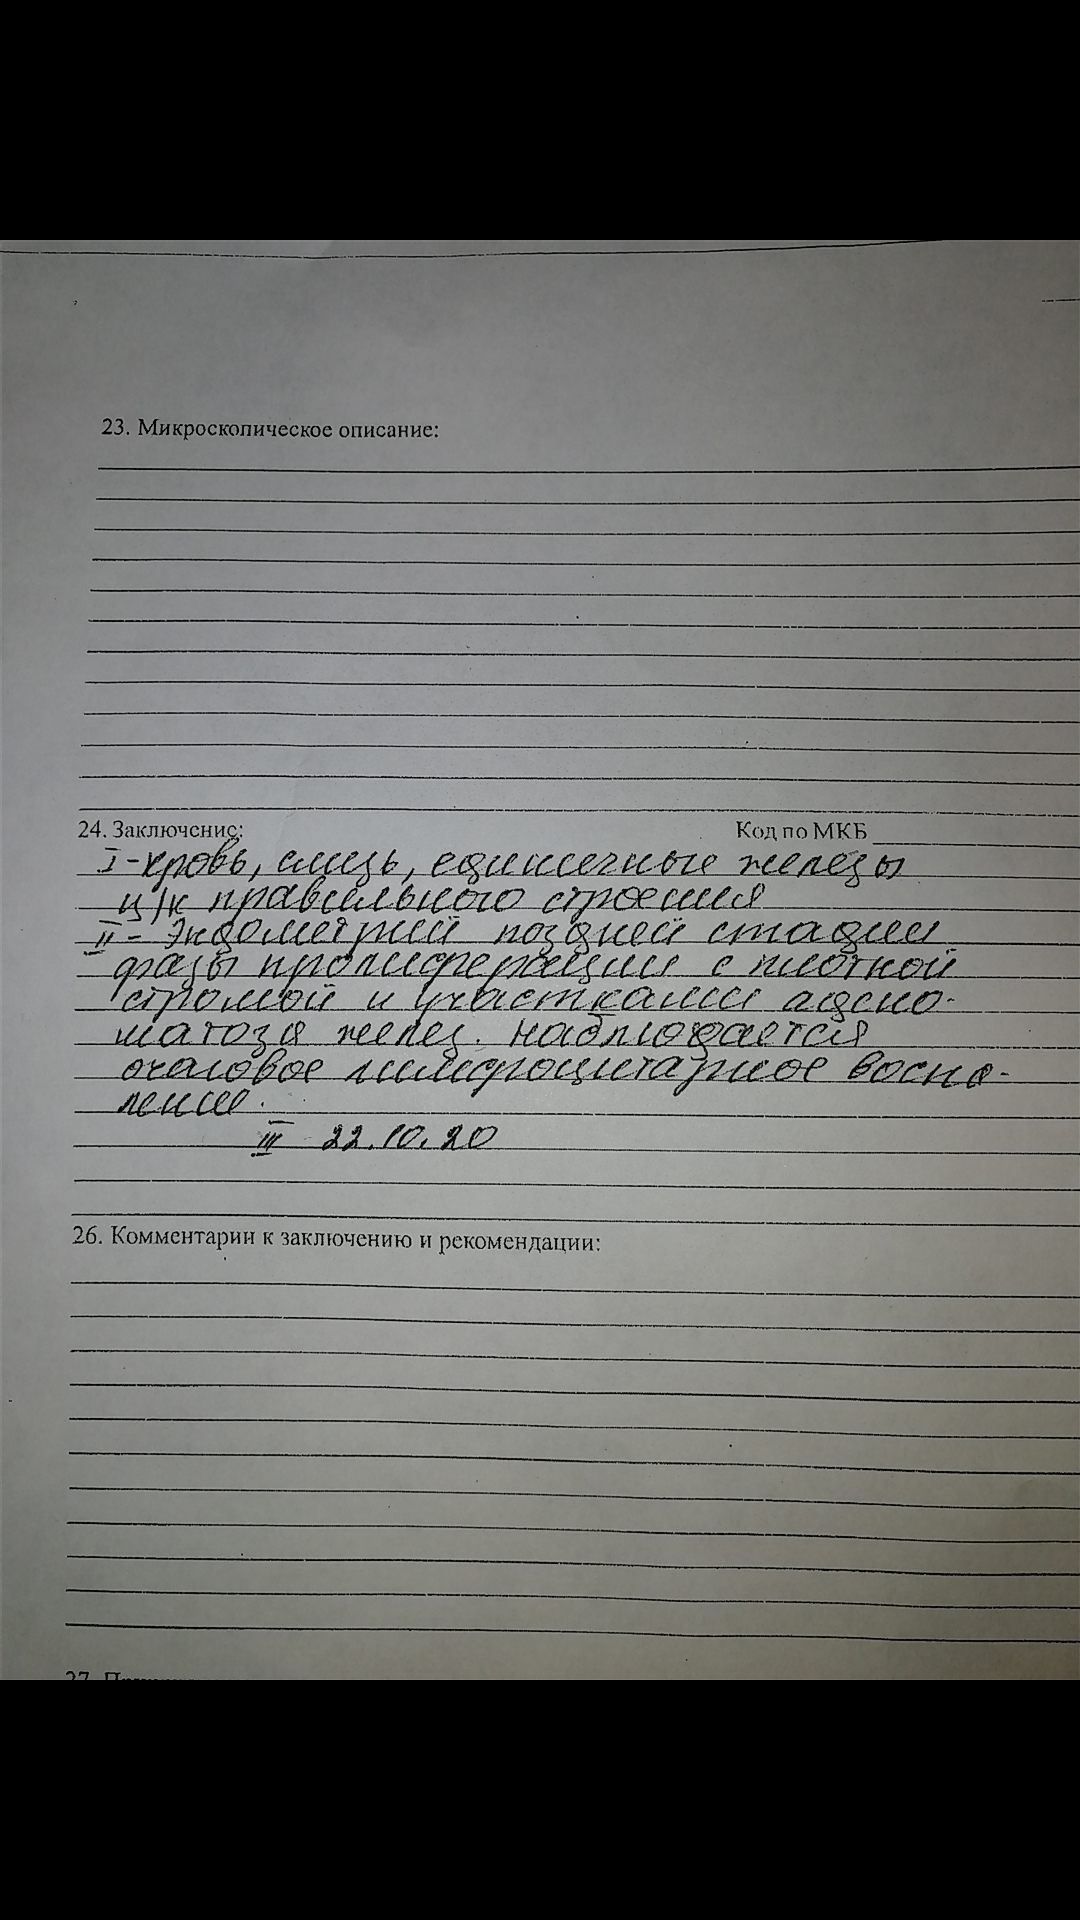 23. Микроскопическое описание:
24. Заключение:
Код по МКБ
I - кровь, слизь, единичные железы
ц/к правильного строения
II - Эндометрий поздней стадии
фазы пролиферации с плотной
стромой и участками адено-
матоза желез. Наблюдается
очаговое лимфоцитарное воспа-
ление.
III 22.10.20
26. Комментарии к заключению и рекомендации:
27.